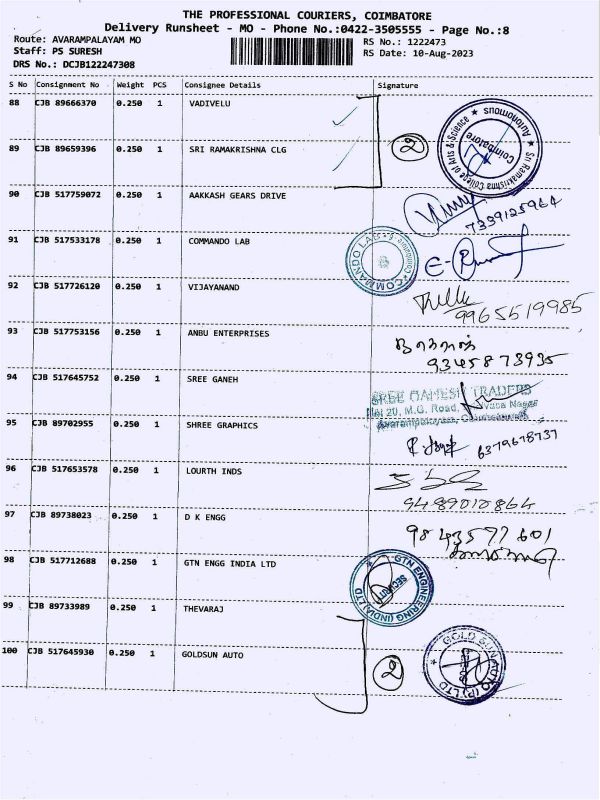 THE PROFESSIONAL COURIERS, COIMBATORE
Delivery Runsheet - MO - Phone No.:0422-3505555 - Page No.:8
Route: AVARAMPALAYAM MO RS No.: 1222473
Staff: PS SURESH RS Date: 10-Aug-2023
DRS No.: DCJB122247308
S No Consignment No Weight PCS Consignee Details Signature
88 CJB 89666370 0.250 1 VADIVELU
89 CJB 89659396 0.250 1 SRI RAMAKRISHNA CLG
2
Sri Ramakrishna College of Arts & Science ★ Autonomous ★
Coimbatore
90 CJB 517759072 0.250 1 AAKKASH GEARS DRIVE
7339125964
91 CJB 517533178 0.250 1 COMMANDO LAB
COMMANDO LAB
92 CJB 517726120 0.250 1 VIJAYANAND
9965519985
93 CJB 517753156 0.250 1 ANBU ENTERPRISES
9345873935
94 CJB 517645752 0.250 1 SREE GANEH
SREE GANESH TRADERS
20, M.G. Road, Nagar
Avarampalayam,
95 CJB 89702955 0.250 1 SHREE GRAPHICS
6379678737
96 CJB 517653578 0.250 1 LOURTH INDS
9489010864
97 CJB 89738023 0.250 1 D K ENGG
9843577601
98 CJB 517712688 0.250 1 GTN ENGG INDIA LTD
GTN ENGINEERING (INDIA) LTD
SECURITY
99 CJB 89733989 0.250 1 THEVARAJ
100 CJB 517645930 0.250 1 GOLDSUN AUTO
2
GOLD SUN AUTO (P) LTD